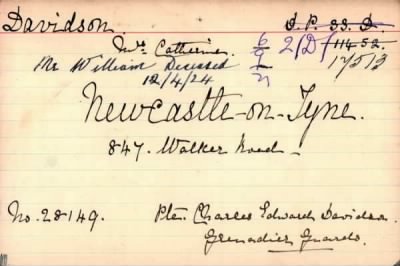 Davidson. D.P. 33. D.
Mrs Catherine. 6/9/21 2/D/ 11452.
Mr William Deceased 17513
12/4/24
Newcastle-on-Tyne.
847. Walker Road.
No. 28149. Pte. Charles Edward Davidson.
Grenadier Guards.